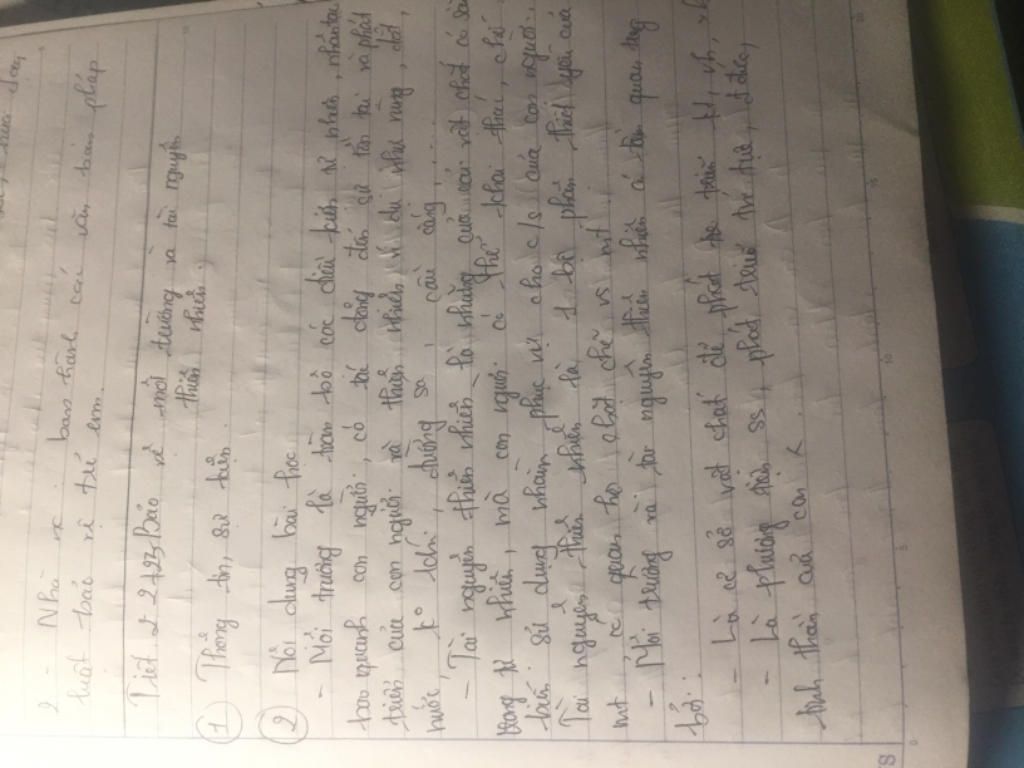 2 - Nhà nc ban hành các văn bản pháp
luật bảo vệ trẻ em.
Tiết 22+23 Bảo vệ môi trường và tài nguyên
thiên nhiên.
① Thông tin, sự kiện
② Nội dung bài học
- Môi trường là toàn bộ các điều kiện tự nhiên, nhân tạo
bao quanh con người, có tác động đến sự tồn tại và phát
triển của con người và thiên nhiên. ví dụ như rừng, đất,
nước, k° khí, đường sá, cầu cống,....
- Tài nguyên thiên nhiên là những của cải vật chất có sẵn
trong tự nhiên, mà con người có thể khai thác, chế
biến sử dụng nhằm phục vụ cho c/s của con người..
Tài nguyên thiên nhiên là 1 bộ phận thiết yếu của
mt quan hệ chặt chẽ vs mt.
- Môi trường và tài nguyên thiên nhiên có tầm quan trọng
bởi:
- Là cơ sở vật chất để phát tr kt, vh,
- Là phương tiện ss, phát triển trí tuệ, đ đức,
tinh thần của con